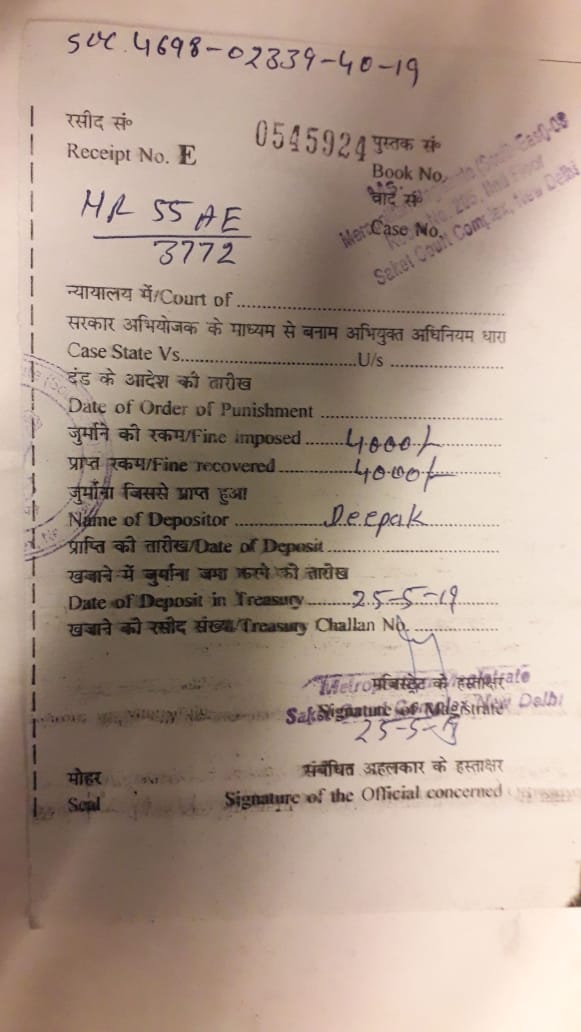 SVC. 4698-02339-40-19
रसीद सं०
Receipt No. E 0545924 पुस्तक सं०
Book No.
वाद सं०
Case No.
Saket Court Complex, New Delhi
HR 55 AE
3772
न्यायालय में/Court of
सरकार अभियोजक के माध्यम से बनाम अभियुक्त अधिनियम धारा
Case State Vs. U/s
दंड के आदेश की तारीख
Date of Order of Punishment
जुर्माने की रकम/Fine imposed 4000/-
प्राप्त रकम/Fine recovered 4000/-
जुर्माना जिससे प्राप्त हुआ
Name of Depositor Deepak
प्राप्ति की तारीख/Date of Deposit
खजाने में जुर्माना जमा करने की तारीख
Date of Deposit in Treasury 25-5-19
खजाने की रसीद संख्या/Treasury Challan No.
मजिस्ट्रेट के हस्ताक्षर
Signature of Magistrate
25-5-19
मोहर
संबंधित अहलकार के हस्ताक्षर
Seal
Signature of the Official concerned